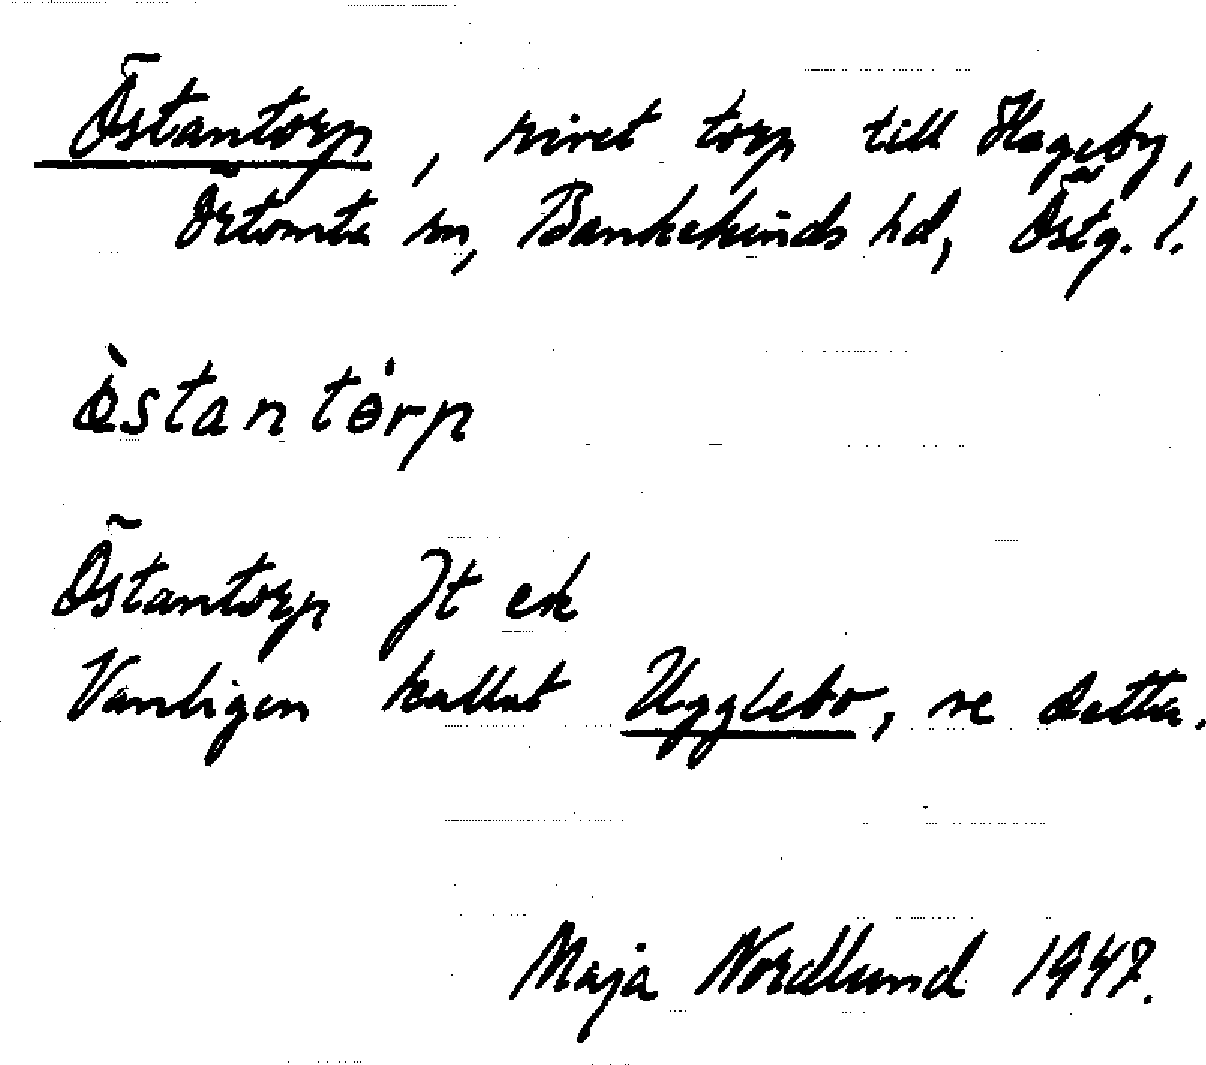 Östantorp, rivet torp till Hageby,
Örtomta sn, Bankekinds hd, Östg. l.
Östantorp Jt ek
Vanligen kallat Ugglebo, se detta.
Maja Nordlund 1947.